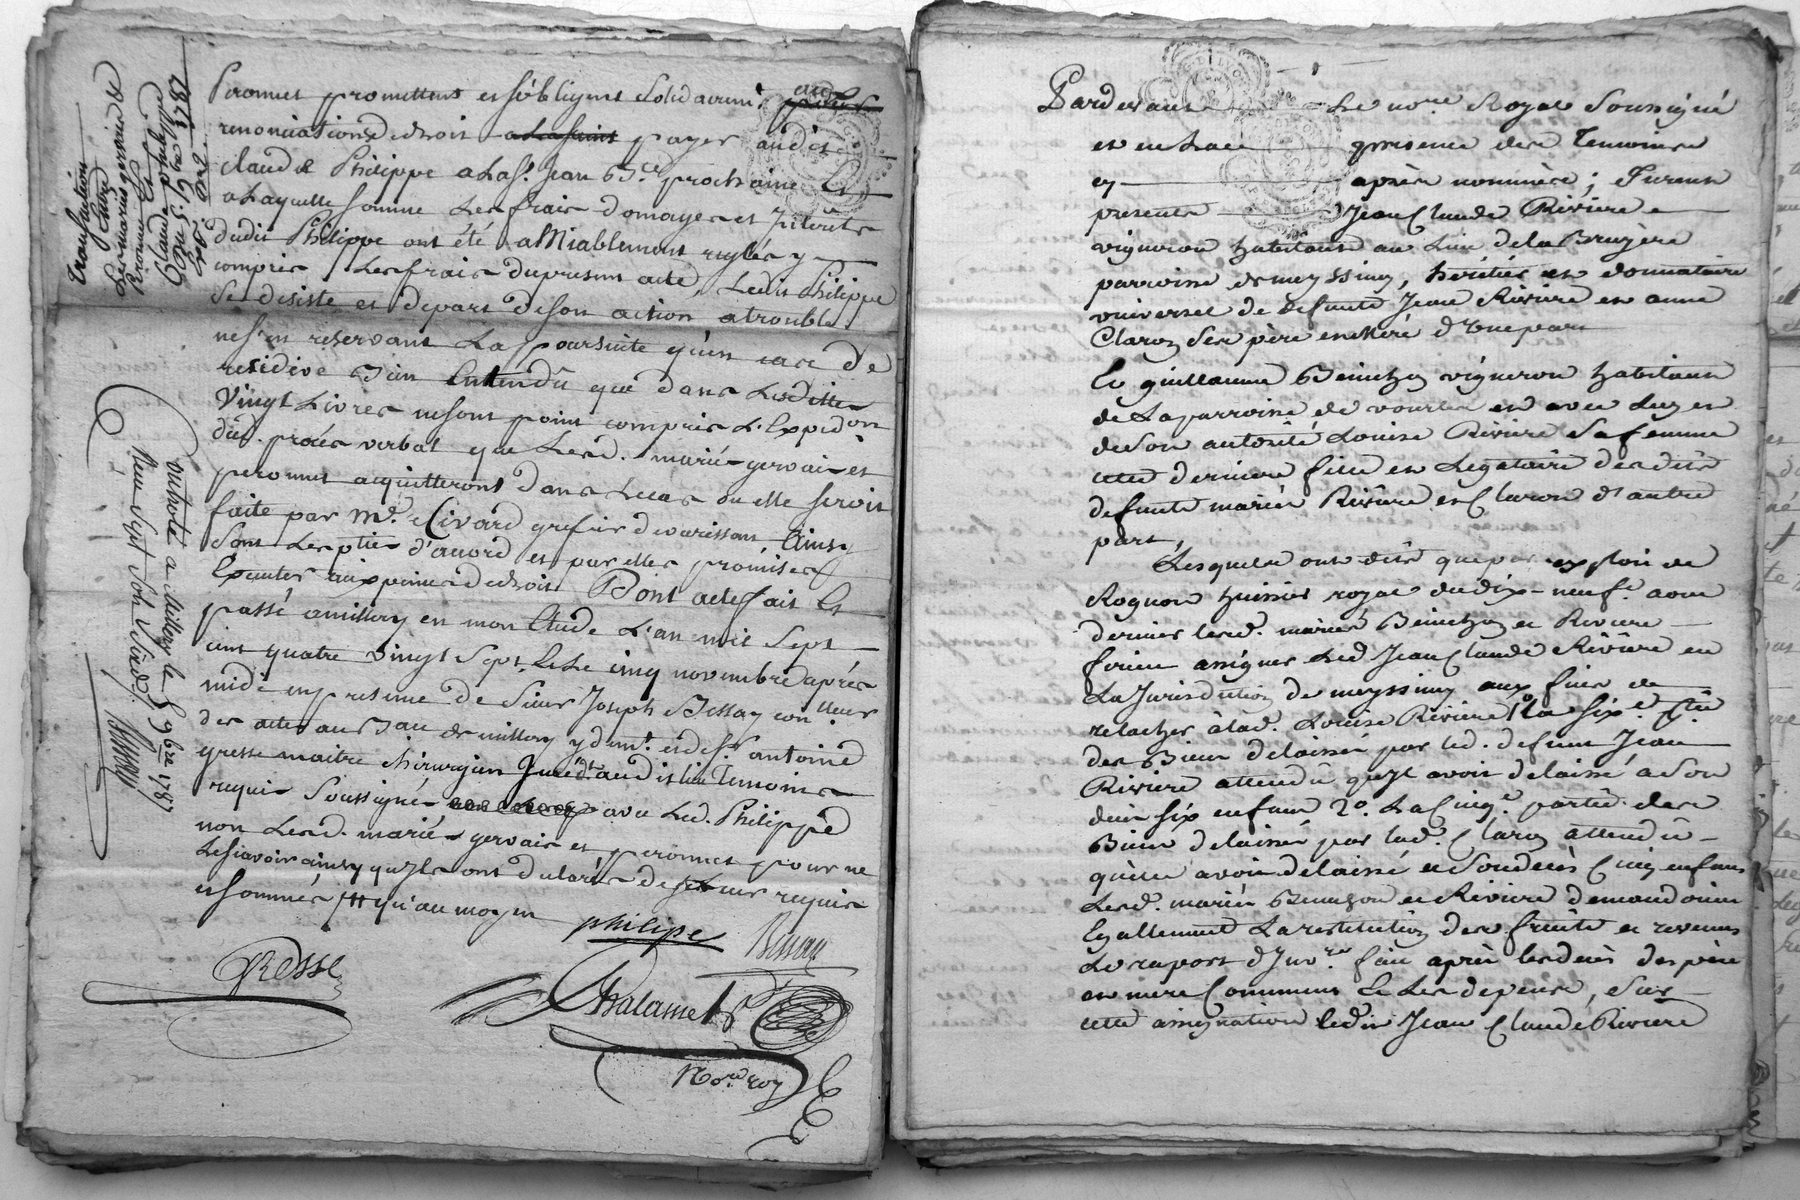 Peronnet promettent et s'obligent solidairement aux
renonciations de droit payer audit
Claude Philippe a la St. Jean Bte. prochaine Et
a laquelle somme les frais domages et Interets
dudit Philippe ont été amiablement reglés y
compris les frais du present acte, Ledit Philippe
se desiste et depart de son action a trouble
ne s'en reservant la poursuite qu'en cas de
residive Bien Entendû que dans Lesdittes
vingt Livres ne sont point compris L'Expedon
du procés verbal que Lesd. mariés gervais et
peronnet acquitteront dans Le cas ou elle seroit
faite par Me. Civard grefier de Ainsy
sont Les pties d'accord et par elles promis
Executer aux peines de droit Dont acte fait Et
passé a millery en mon Etude L'an mil sept
cent quatre vingt sept Et Le cinq novembre aprés
midi en presence de sieur Joseph Bessay con.lleur
des actes au Bau de millery y demt. et de sr. antoine
gresse maitre chirurgien Juré dt. audit lieu temoins
requis soussignés avec Led. Philippe
non Lesd. mariés gervais et peronnet pour ne
Le savoir ainsy qu'Ils ont declarés de ce enquis
et sommés /// qu'au moyen
philipe
Bessay
GResse
Chalamel
Nore. roy
transaction
Entre
Les mariés gervais et
Peronnet
Controlé a Millery le 8 9bre 1787
Reçu vingt sols
Bessay
Pardevant Le nore. Royal Soussigné
et en la presence des Temoins
cy aprés nommés; furent
presents Jean Claude Riviere
vigneron habitant au Lieu de la Bruyère
parroisse de meyssimy, héritier et donnataire
universel de defunts Jean Rivière et anne
Claron Ses père et Meré d'Une part
Et guillaume Benichon vigneron habitant
de La parroisse de vourles et avec Luy et
de son autorité Louise Rivière Sa femme
cette derniere fille et Legataire desdits
defunts mariés Rivière et Claron d'autre
part,
Lesquels ont dits que par exploit de
Rognon huissier royal du dix-neuf aout
dernier lesd. mariés Benichon et Riviere
firent assigner led Jean Claude Rivière en
La Jurisdiction de meyssimy aux fins de
relacher à lad. Louise Rivière 1o. la sixe. ptie
des Biens délaissés par led. defunt Jean
Riviere attendû qu'Il avoit délaissé a son
deces six enfans 2o. La Cinqe. partie des
Biens délaissés par lad. Claron attendû
qu'elle avoit délaissé a son decès Cinq enfans
Lesd. mariés Benichon et Riviere demandoient
Egallement La restitution des fruits et revenus
Le raport d'Invre. fait après les decès des père
et mere Communs Et Les depens, Sur
cette assignation ledit Jean Claude Riviere